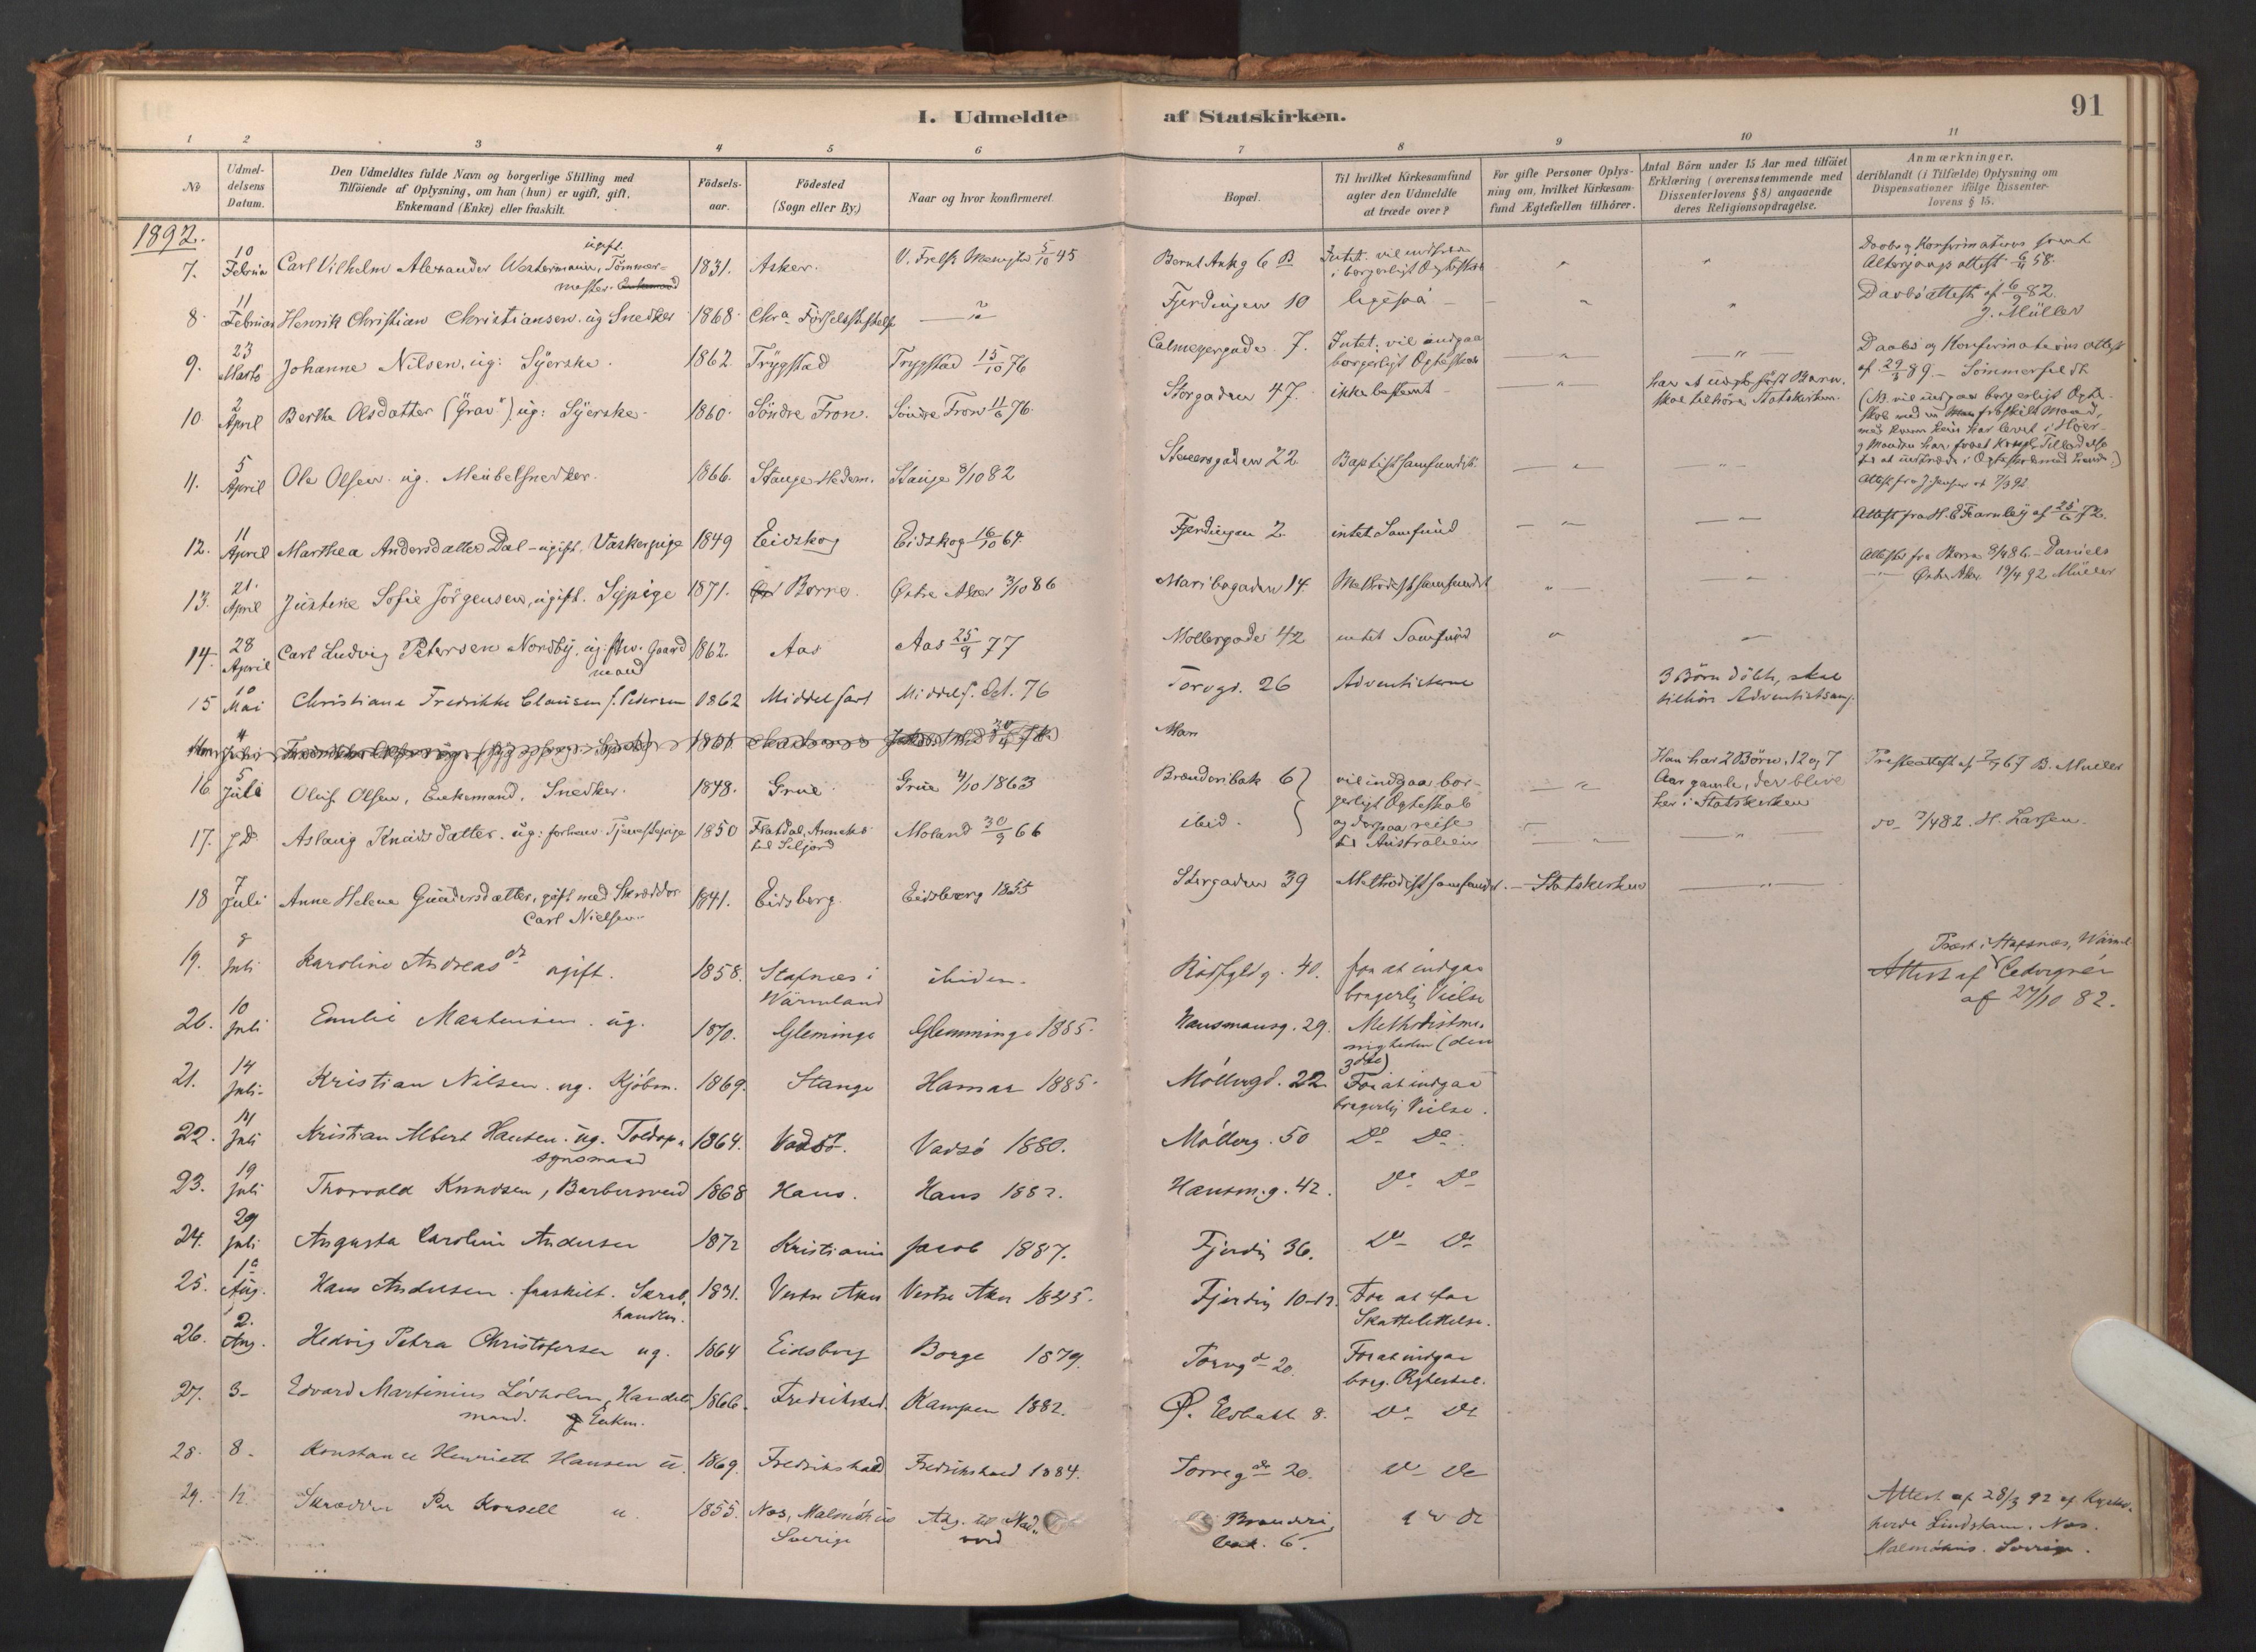 I. Udmeldte af Statskirken.
91
1 2 3 4 5 6 7 8 9 10 11
No
Udmel-
delsens
Datum.
Den Udmeldtes fulde Navn og borgerlige Stilling med
Tilföiende af Oplysning, om han (hun) er ugift, gift,
Enkemand (Enke) eller fraskilt.
Födsels-
aar.
Födested
(Sogn eller By.)
Naar og hvor konfirmeret.
Bopæl.
Til hvilket Kirkesamfund
agter den Udmeldte
at træde over?
For gifte Personer Oplys-
ning om, hvilket Kirkesam-
fund Ægtefællen tilhörer.
Antal Börn under 15 Aar med tilföiet
Erklæring (overensstemmende med
Dissenterlovens § 8) angaaende
deres Religionsopdragelse.
Anmærkninger.
deriblandt (i Tilfælde) Oplysning om
Dispensationer ifölge Dissenter-
lovens § 15.
1892.
7. 10 Februar Carl Vilhelm Alexander Westermann, Tömmer-
mester. ugift. 1831. Asker. V. Frels. Menighed 5/10 45 Bernt Ankg 6 B Intet. vil indtræde
i borgerligt Ægteskab " " Daabs og Konfirmations samt
Altergangsattest 6/4 58.
8. 11 Februar Henrik Christian Christiansen. ug Snedker 1868. Chra Fødselsstiftelse Fjerdingen 10 ligesaa " " Daabsattest af 6/9 82.
J. Müller
9. 23 Marts Johanne Nilsen, ug: Syerske. 1862. Trygstad Trygstad 15/10 76 Calmeyergade 7. Intet: vil indgaa
borgerligt Ægteskab " " Daabs og Konfirmations attest
af 29/3 89. Sommerfeldt
10. 2 April Berthe Olsdatter ("Grav") ug: Syerske. 1860. Söndre Fron. Söndre Fron 11/6 76. Storgaden 47. ikke bestemt " har et uægte født Barn.
skal tilhöre Statskirken. (NB. vil indgaa borgerligt Ægte-
skab med en fraskilt Mand,
11. 5 April Ole Olsen. ug. Meubelsnedker. 1866. Stange Hedem. Stange 8/10 82 Steenersgaden 22 Baptistsamfundet. " " Attest fra J. Jensen at 7/3 92
12. 11 April Marthea Andersdatter Dal - ugift. Vaskerpige 1849 Eidskog Eidskog 16/10 64. Fjerdingen 2. intet Samfund " " Attest fra H. E. Fearnley af 25/6 72.
13. 21. April Justine Sofie Jörgensen, ugift. Sypige 1871. Borre. Østre Aker 3/10 86 Maribogaden 14. Methodistsamfundet " " Attester fra Borre 9/4 86 - Daniels
Østre Aker 19/4 92 Müller
14. 28 April Carl Ludvig Petersen Nordby, ug: Gaard
mand 1862. Aas Aas 25/9 77 Möllergade 42 intet Samfund " "
15 10 Mai Christiane Fredrikke Clausen f. Pedersen 1862 Middelfart Middelf. Oct. 76 Torvgd. 26 Adventisterne 3 Börn döbte, skal
tilhöre Adventistsamf.
16 5 Juli Oluf Olsen, Enkemand, Snedker. 1848. Grue. Grue 4/10 1863 Brænderibak 6 vil indgaa bor-
gerligt Ægteskab
og derpaa reise
til Australien " Han har 2 Börn, 12 og 7
Aar gamle, der blive
her i Statskirken Presteattest af 67 B. Müller
17. J.D. Aslaug Knudsdatter. ug: forhenv. Tjenestepige 1850 Flatdal, Anneks
til Siljord Moland 30/9 66 ibid. " " do 7/4 82. H. Larsen.
18 7 Juli Anne Helene Gundersdatter, gift med Skrædder
Carl Nielsen. 1841. Eidsberg. Eidsberg 1855 Storgaden 39 Methodistsamfundet. Statskirken "
19. 8 Juli Karoline Andreasdr ugift. 1858. Stafnæs i
Wärmland ibidem. Rödfyldg. 40. for at indgaa
borgerlig Vielse Attest af Præst i Stafnæs, Wärml.
Cedergrén
af 27/10 82.
20. 10 Juli Emilie Martinsen. ug. 1870. Gleminge Glemminge 1885. Hausmansg. 29. Methodistme-
nigheden (den
3die)
21. 14 Juli. Kristian Nilsen. ug. Kjöbm. 1869. Stange Hamar 1885. Möllergd. 22 For at indgaa
borgerlig Vielse.
22. 14 Juli Kristian Albert Hansen. ug. Toldop-
synsmand 1864. Vadsö. Vadsö 1880. Möllerg. 50 Do Do
23. 19 Juli Thorvald Knudsen, Barbersvend 1868 Haus. Haus 1882. Hausm.g. 42. Do Do
24. 29 Juli Augusta Caroline Andersen 1872 Kristiania Jacob 1887. Fjerdin 36. Do Do
25. 1e Aug. Hans Andersen. fraskilt. Skrab-
handler. 1831. Vestre Aker Vestre Aker 1845. Fjerdin 10-12. For at faa
Skattelettelse.
26. 2. Aug. Hedvig Petra Christofersen ug. 1864 Eidsberg Borge 1879. Torvgd 20. For at indgaa
borg. Ægteskab.
27. 3 - Edvard Martinius Lövholm, Handels
mand. Enkm. 1866. Fredriksstad. Kampen 1882. Ø. Elvbakk 8. Do Do
28. 8 - Konstance Henriette Hansen u. 1869. Fredrikshald Fredrikshald 1884. Torvegd 20. Do Do
29. 12 Skrædder Per Korsell u. 1855. Næs, Malmöhus
Sverige Adg. til Nad-
verd Brænderi
bak. 6. Do Attest af 28/3 92 af Kyrko-
herde Lindstam. Næs.
Malmöhus. Sverige.